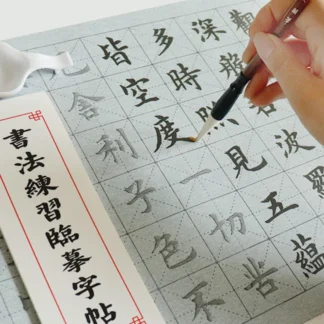 觀
深般
波羅
多時照見五蘊
皆空度一切苦
厄舍利子色不
書法練習臨摹字帖